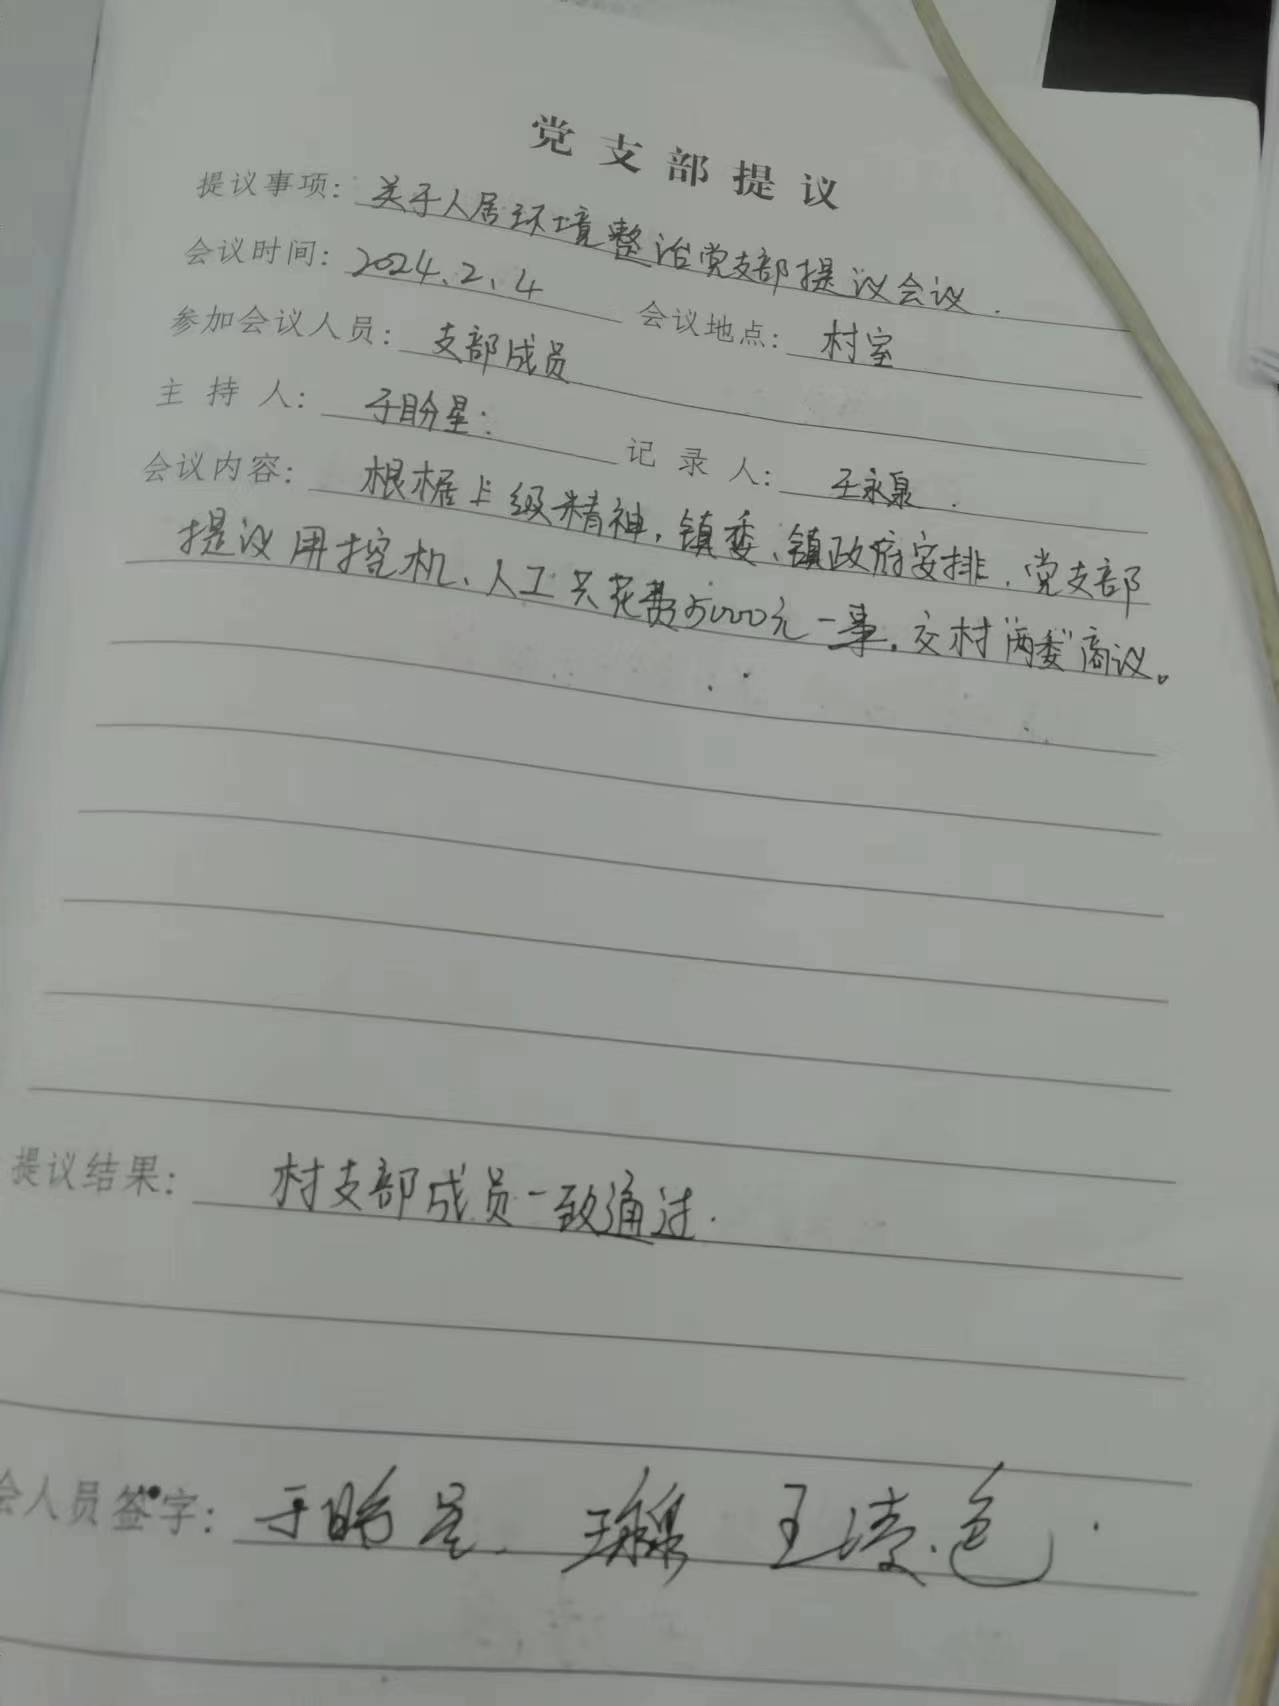 党支部提议
提议事项：关于人居环境整治党支部提议会议.
会议时间：2024.2.4 会议地点：村室
参加会议人员：支部成员
主持人：于盼星： 记录人：王永泉.
会议内容：根据上级精神，镇委、镇政府安排，党支部
提议用挖机、人工共花费5000元一事，交村“两委”商议。
提议结果：村支部成员一致通过.
会人员签字：于盼星. 王永泉 王